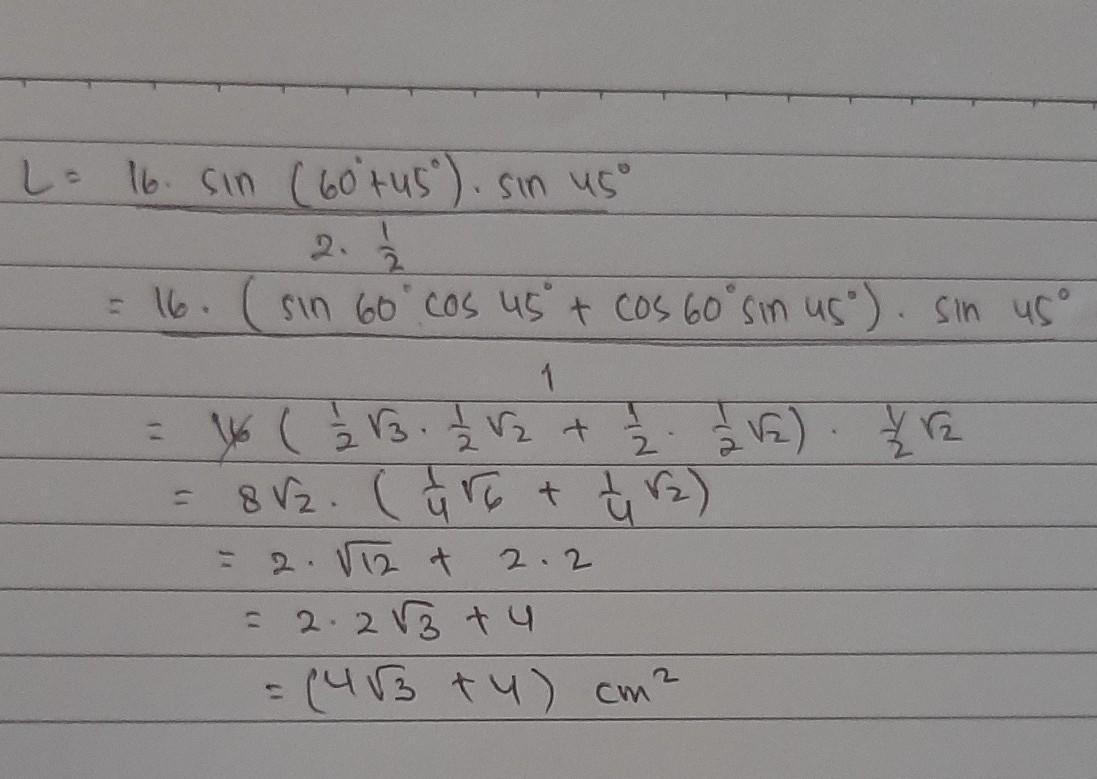 L = 16 · sin (60° + 45°) · sin 45°
2 · 1/2
= 16 · (sin 60° cos 45° + cos 60° sin 45°) · sin 45°
1
= 16 (1/2 √3 · 1/2 √2 + 1/2 · 1/2 √2) · 1/2 √2
= 8√2 · (1/4 √6 + 1/4 √2)
= 2 · √12 + 2 · 2
= 2 · 2√3 + 4
= (4√3 + 4) cm²